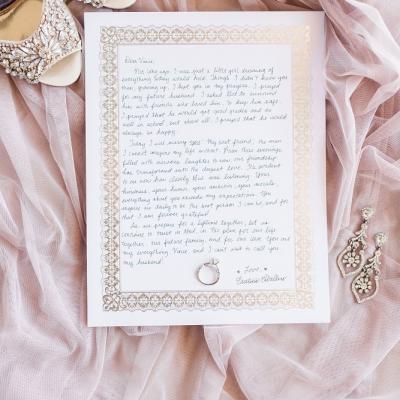 Dear Vince,
Years ago, I was just a little girl dreaming of
everything today would hold. Things I didn't know you
then, growing up, I kept you in my prayers. I prayed
for my future husband. I asked God to surround
him with friends who loved him. To keep him safe.
I prayed that he would get good grades and do
well in school, but above all, I prayed that he would
always be happy.
Today I will marry you! My best friend, the man
I cannot imagine my life without. From those evenings
filled with laughter to now, our friendship
has transformed into the deepest love. It's evident
to me now how clearly God was listening. Your
kindness, your humor, your ambition, your morals,
everything about you exceeds my expectations. You
inspire me daily to be the best person I can be, and for
that I am forever grateful!
As we prepare for a lifetime together, let us
continue to trust in God, in His plan for our life
together, our future family, and for our love. You are
my everything Vince, and I can't wait to call you
my husband.
Love,